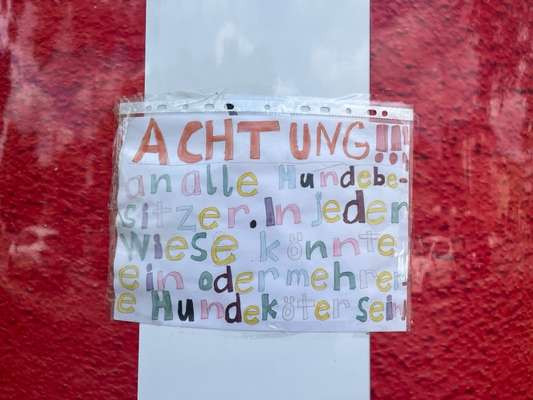 ACHTUNG!!!
an alle Hundebe-
sitzer. In jeder
Wiese könnte
ein oder mehrer-
e Hundeköter sein